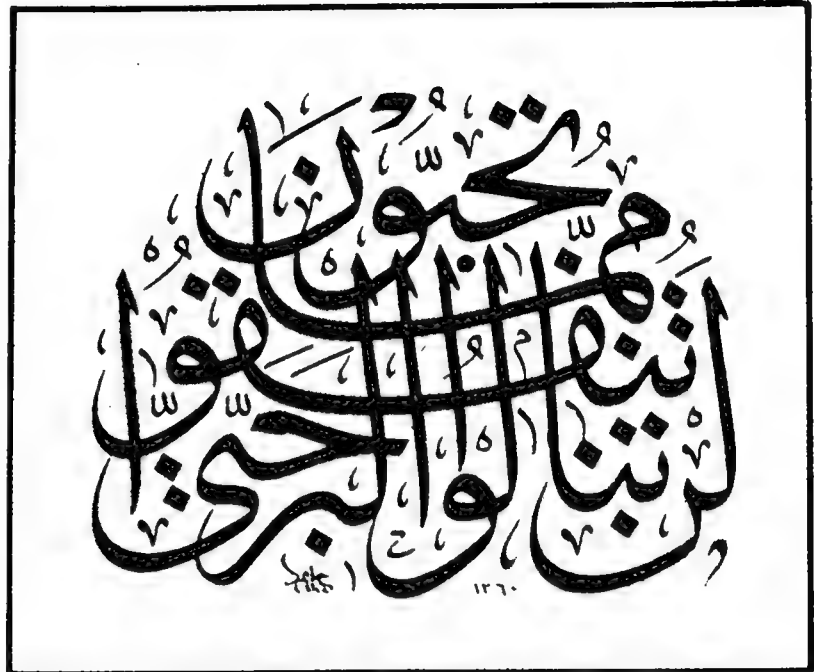 لَنْ تَنَالُوا الْبِرَّ حَتَّى تُنْفِقُوا مِمَّا تُحِبُّونَ
١٢٦٠